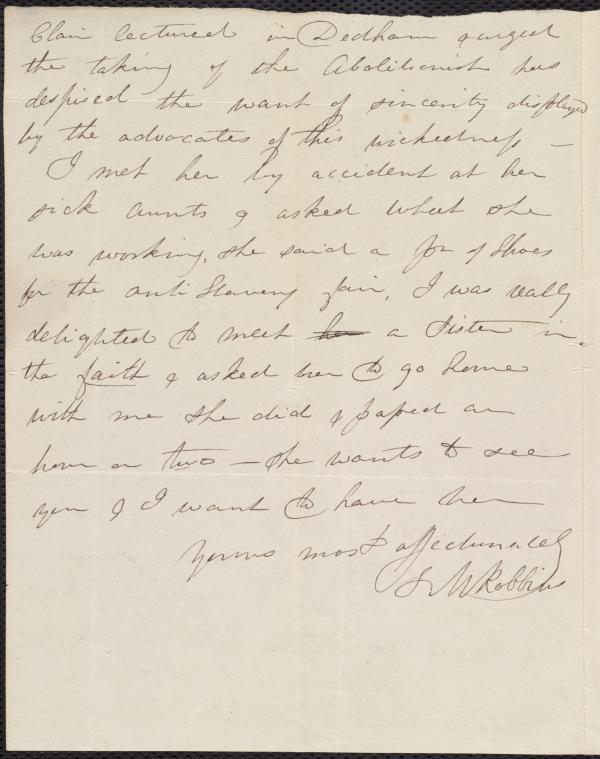 Clair lectured in Dedham & urged
the taking of the Abolitionist has
despised the want of sincerity displayed
by the advocates of this wickedness –
I met her by accident at her
sick aunts & asked what she
was working, she said a pr of Shoes
for the anti Slavery fair, I was really
delighted to meet her a Sister in
the faith & asked her to go home
with me she did & passed an
hour or two – she wants to see
you & I want to have her
Yours most affectionately
S. M Robbins